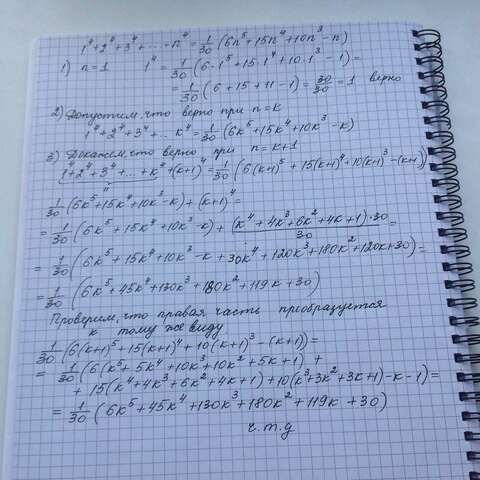 1⁴+2⁴+3⁴+...+n⁴=1/30(6n⁵+15n⁴+10n³-n)
1) n=1 1⁴=1/30(6·1⁵+15·1⁴+10·1³-1)=
=1/30(6+15+11-1)=30/30=1 верно
2) Допустим, что верно при n=k
1⁴+2⁴+3⁴+...k⁴=1/30(6k⁵+15k⁴+10k³-k)
3) Докажем, что верно при n=k+1
1⁴+2⁴+3⁴+...+k⁴+(k+1)⁴=1/30(6(k+1)⁵+15(k+1)⁴+10(k+1)³-(k+1))
1/30(6k⁵+15k⁴+10k³-k)+(k+1)⁴=
=1/30(6k⁵+15k⁴+10k³-k)+(k⁴+4k³+6k²+4k+1)·30/30=
=1/30(6k⁵+15k⁴+10k³-k+30k⁴+120k³+180k²+120k+30)=
=1/30(6k⁵+45k⁴+130k³+180k²+119k+30)
Проверим, что правая часть преобразуется
к тому же виду
1/30(6(k+1)⁵+15(k+1)⁴+10(k+1)³-(k+1))=
=1/30(6(k⁵+5k⁴+10k³+10k²+5k+1)+
+15(k⁴+4k³+6k²+4k+1)+10(k³+3k²+3k+1)-k-1)=
=1/30(6k⁵+45k⁴+130k³+180k²+119k+30)
ч.т.д